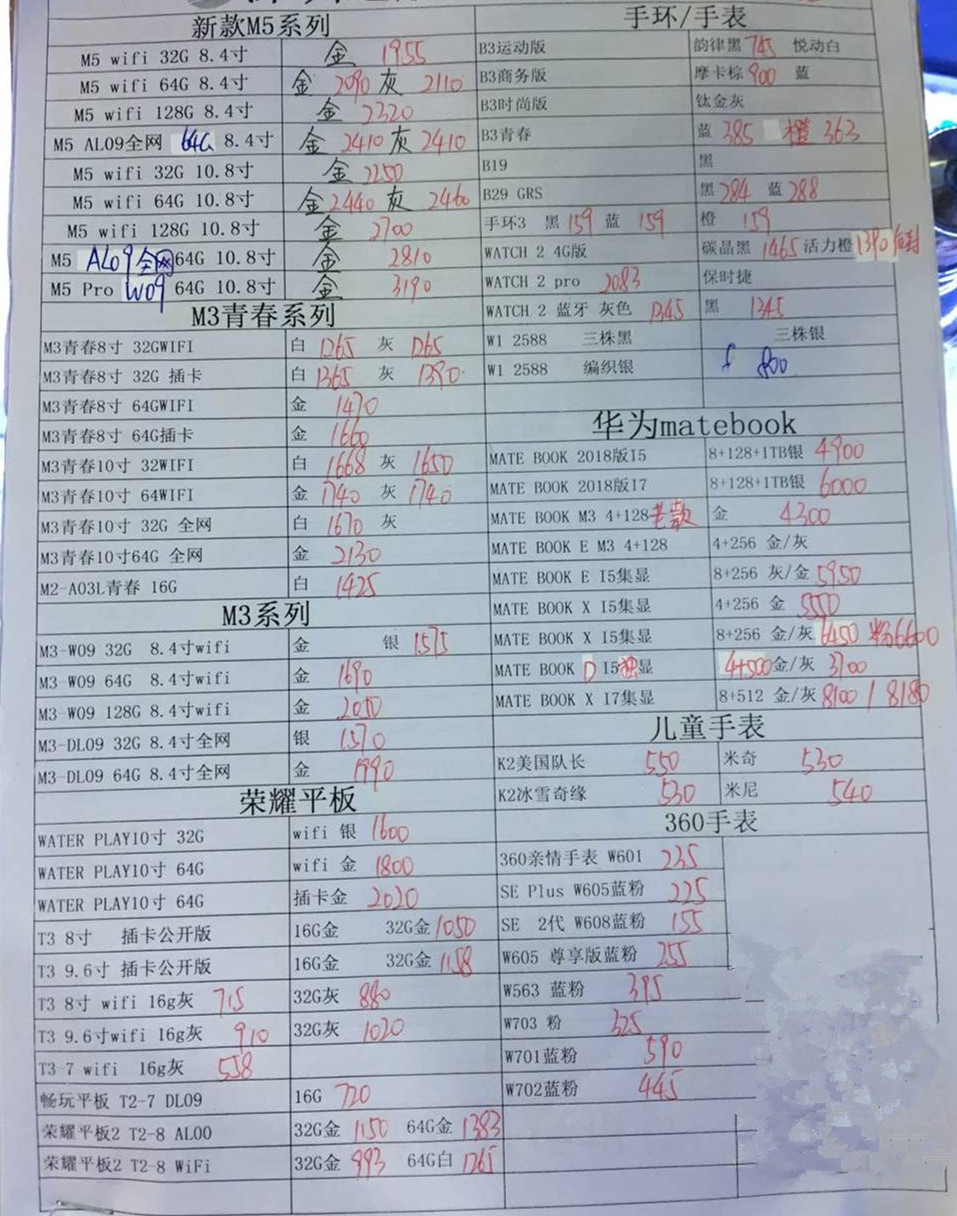 新款M5系列
M5 wifi 32G 8.4寸 金 1955
M5 wifi 64G 8.4寸 金 2090 灰 2110
M5 wifi 128G 8.4寸 金 2320
M5 AL09全网 64G 8.4寸 金 2410 灰 2410
M5 wifi 32G 10.8寸 金 2250
M5 wifi 64G 10.8寸 金 2440 灰 2460
M5 wifi 128G 10.8寸 金 2700
M5 AL09全网 64G 10.8寸 金 2810
M5 Pro W09 64G 10.8寸 金 3190
M3青春系列
M3青春8寸 32GWIFI 白 1265 灰 1265
M3青春8寸 32G 插卡 白 1365 灰 1390
M3青春8寸 64GWIFI 金 1470
M3青春8寸 64G插卡 金 1660
M3青春10寸 32WIFI 白 1668 灰 1650
M3青春10寸 64WIFI 金 1740 灰 1740
M3青春10寸 32G 全网 白 1670 灰
M3青春10寸64G 全网 金 2130
M2-A03L青春 16G 白 1425
M3系列
M3-W09 32G 8.4寸wifi 金 银 1575
M3-W09 64G 8.4寸wifi 金 1690
M3-W09 128G 8.4寸wifi 金
M3-DL09 32G 8.4寸全网 银 1570
M3-DL09 64G 8.4寸全网 金 1990
荣耀平板
WATER PLAY10寸 32G wifi 银 1600
WATER PLAY10寸 64G wifi 金 1800
WATER PLAY10寸 64G 插卡金 2020
T3 8寸 插卡公开版 16G金 32G金 1050
T3 9.6寸 插卡公开版 16G金 32G金 1158
T3 8寸 wifi 16g灰 715 32G灰 880
T3 9.6寸wifi 16g灰 910 32G灰 1020
T3-7 wifi 16g灰 558
畅玩平板 T2-7 DL09 16G 720
荣耀平板2 T2-8 AL00 32G金 1150 64G金 1383
荣耀平板2 T2-8 WiFi 32G金 993 64G白 1265
手环/手表
B3运动版 韵律黑 745 悦动白
B3商务版 摩卡棕 900 蓝
B3时尚版 钛金灰
B3青春 蓝 385 橙 363
B19 黑
B29 GRS 黑 284 蓝 288
手环3 黑 159 蓝 159 橙 159
WATCH 2 4G版 碳晶黑 1465 活力橙 1390
WATCH 2 pro 2083 保时捷
WATCH 2 蓝牙 灰色 1345 黑 1345
W1 2588 三株黑 三株银
W1 2588 编织银 800
华为matebook
MATE BOOK 2018版I5 8+128+1TB银 4900
MATE BOOK 2018版I7 8+128+1TB银 6000
MATE BOOK M3 4+128老款 金 4300
MATE BOOK E M3 4+128 4+256 金/灰
MATE BOOK E I5集显 8+256 灰/金 5950
MATE BOOK X I5集显 4+256 金 5550
MATE BOOK X I5集显 8+256 金/灰 6450 粉6600
MATE BOOK D I5独显 4+500金/灰 3700
MATE BOOK X I7集显 8+512 金/灰 8100 / 8180
儿童手表
K2美国队长 550 米奇 530
K2冰雪奇缘 530 米尼 540
360手表
360亲情手表 W601 235
SE Plus W605蓝粉 225
SE 2代 W608蓝粉 155
W605 尊享版蓝粉 255
W563 蓝粉 395
W703 粉 325
W701蓝粉 590
W702蓝粉 445